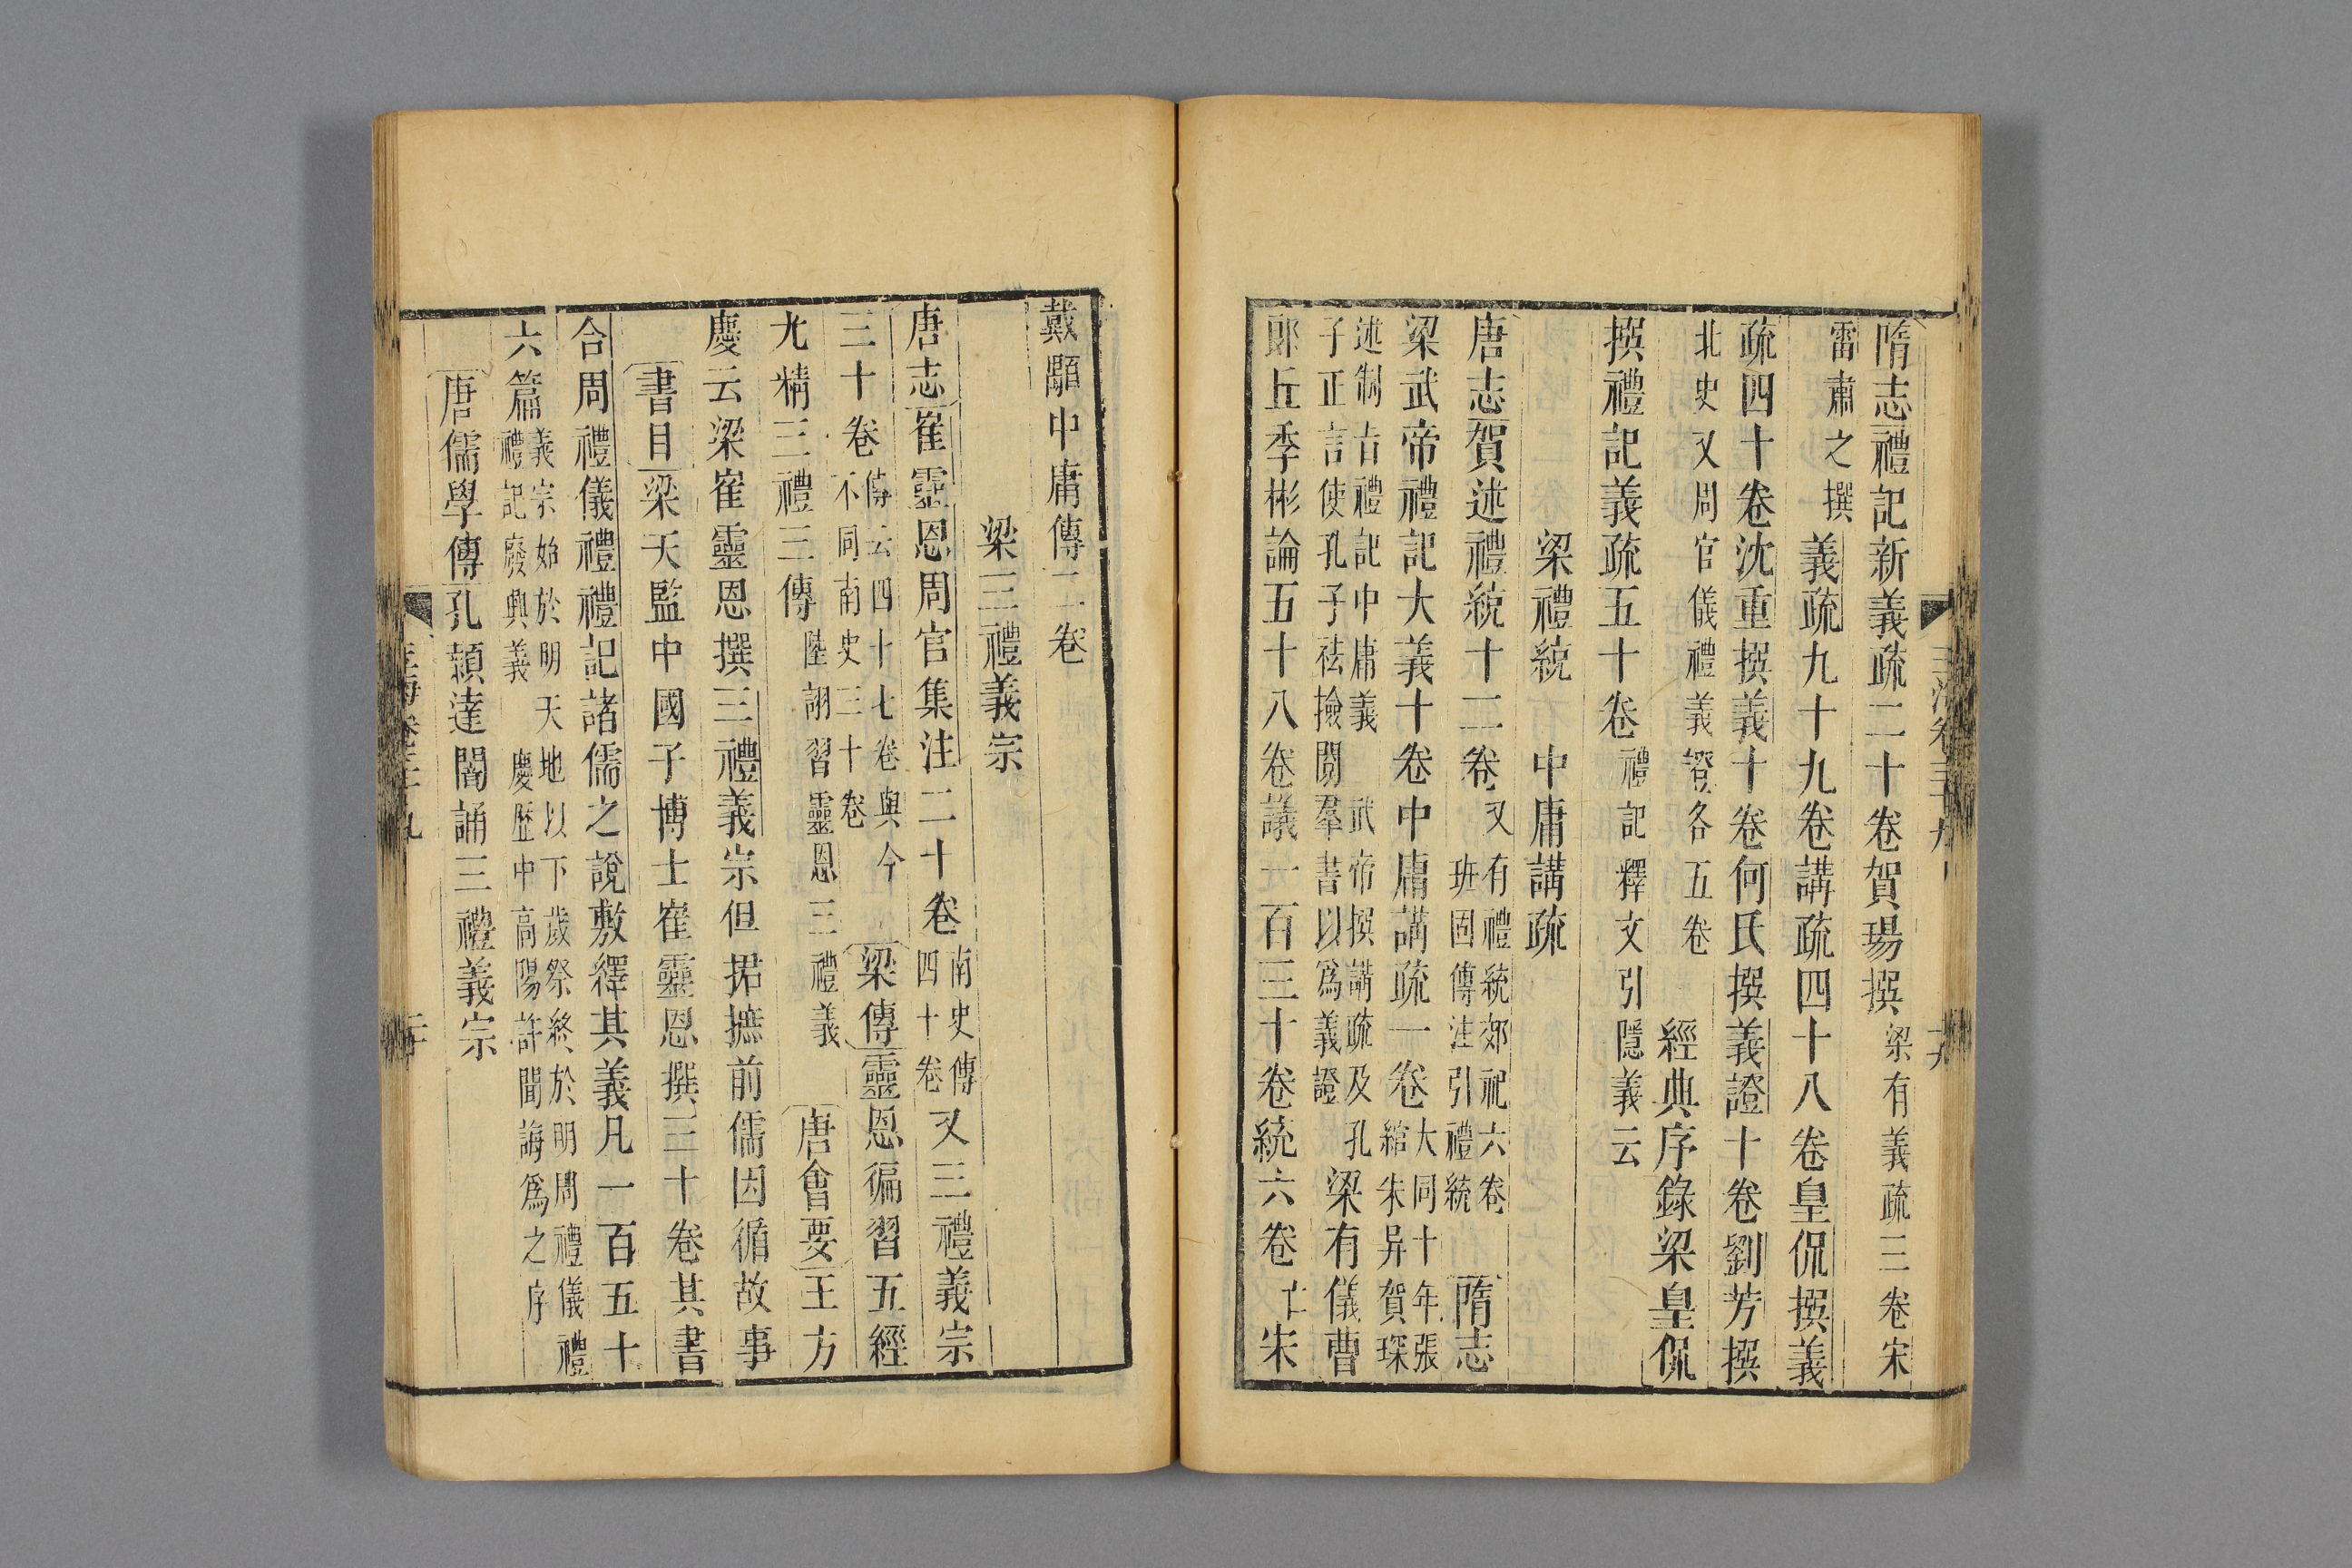 隋志禮記新義疏二十卷賀瑒撰梁有義疏三卷宋
雷肅之撰義疏九十九卷講疏四十八卷皇侃撰義
疏四十卷沈重撰義十卷何氏撰義證十卷劉芳撰
北史又周官儀禮義證各五卷經典序錄梁皇侃
撰禮記義疏五十卷禮記釋文引隱義云
梁禮統 中庸講疏
唐志賀述禮統十二卷又有禮統郊祀六卷班固傳注引禮統隋志
梁武帝禮記大義十卷中庸講疏一卷大同十年張綰朱异賀琛
述制古禮記中庸義武帝撰講疏及孔子正言使孔子袪撿閱羣書以爲義證梁有儀曹
郎丘季彬論五十八卷議一百三十卷統六卷亡朱
玉海卷三十九 十九
戴顒中庸傳二卷
梁三禮義宗
唐志崔靈恩周官集注二十卷南史傳四十卷又三禮義宗
三十卷傳云四十七卷與今不同南史三十卷梁傳靈恩徧習五經
尤精三禮三傳陸詡習靈恩三禮義唐會要王方
慶云梁崔靈恩撰三禮義宗但捃摭前儒因循故事
書目梁天監中國子博士崔靈恩撰三十卷其書
合周禮儀禮禮記諸儒之說敷釋其義凡一百五十
六篇義宗始於明天地以下歲祭終於明周禮儀禮禮記廢興義慶歷中高陽許聞誨爲之序
唐儒學傳孔穎達闇誦三禮義宗
玉海卷三十九 二十